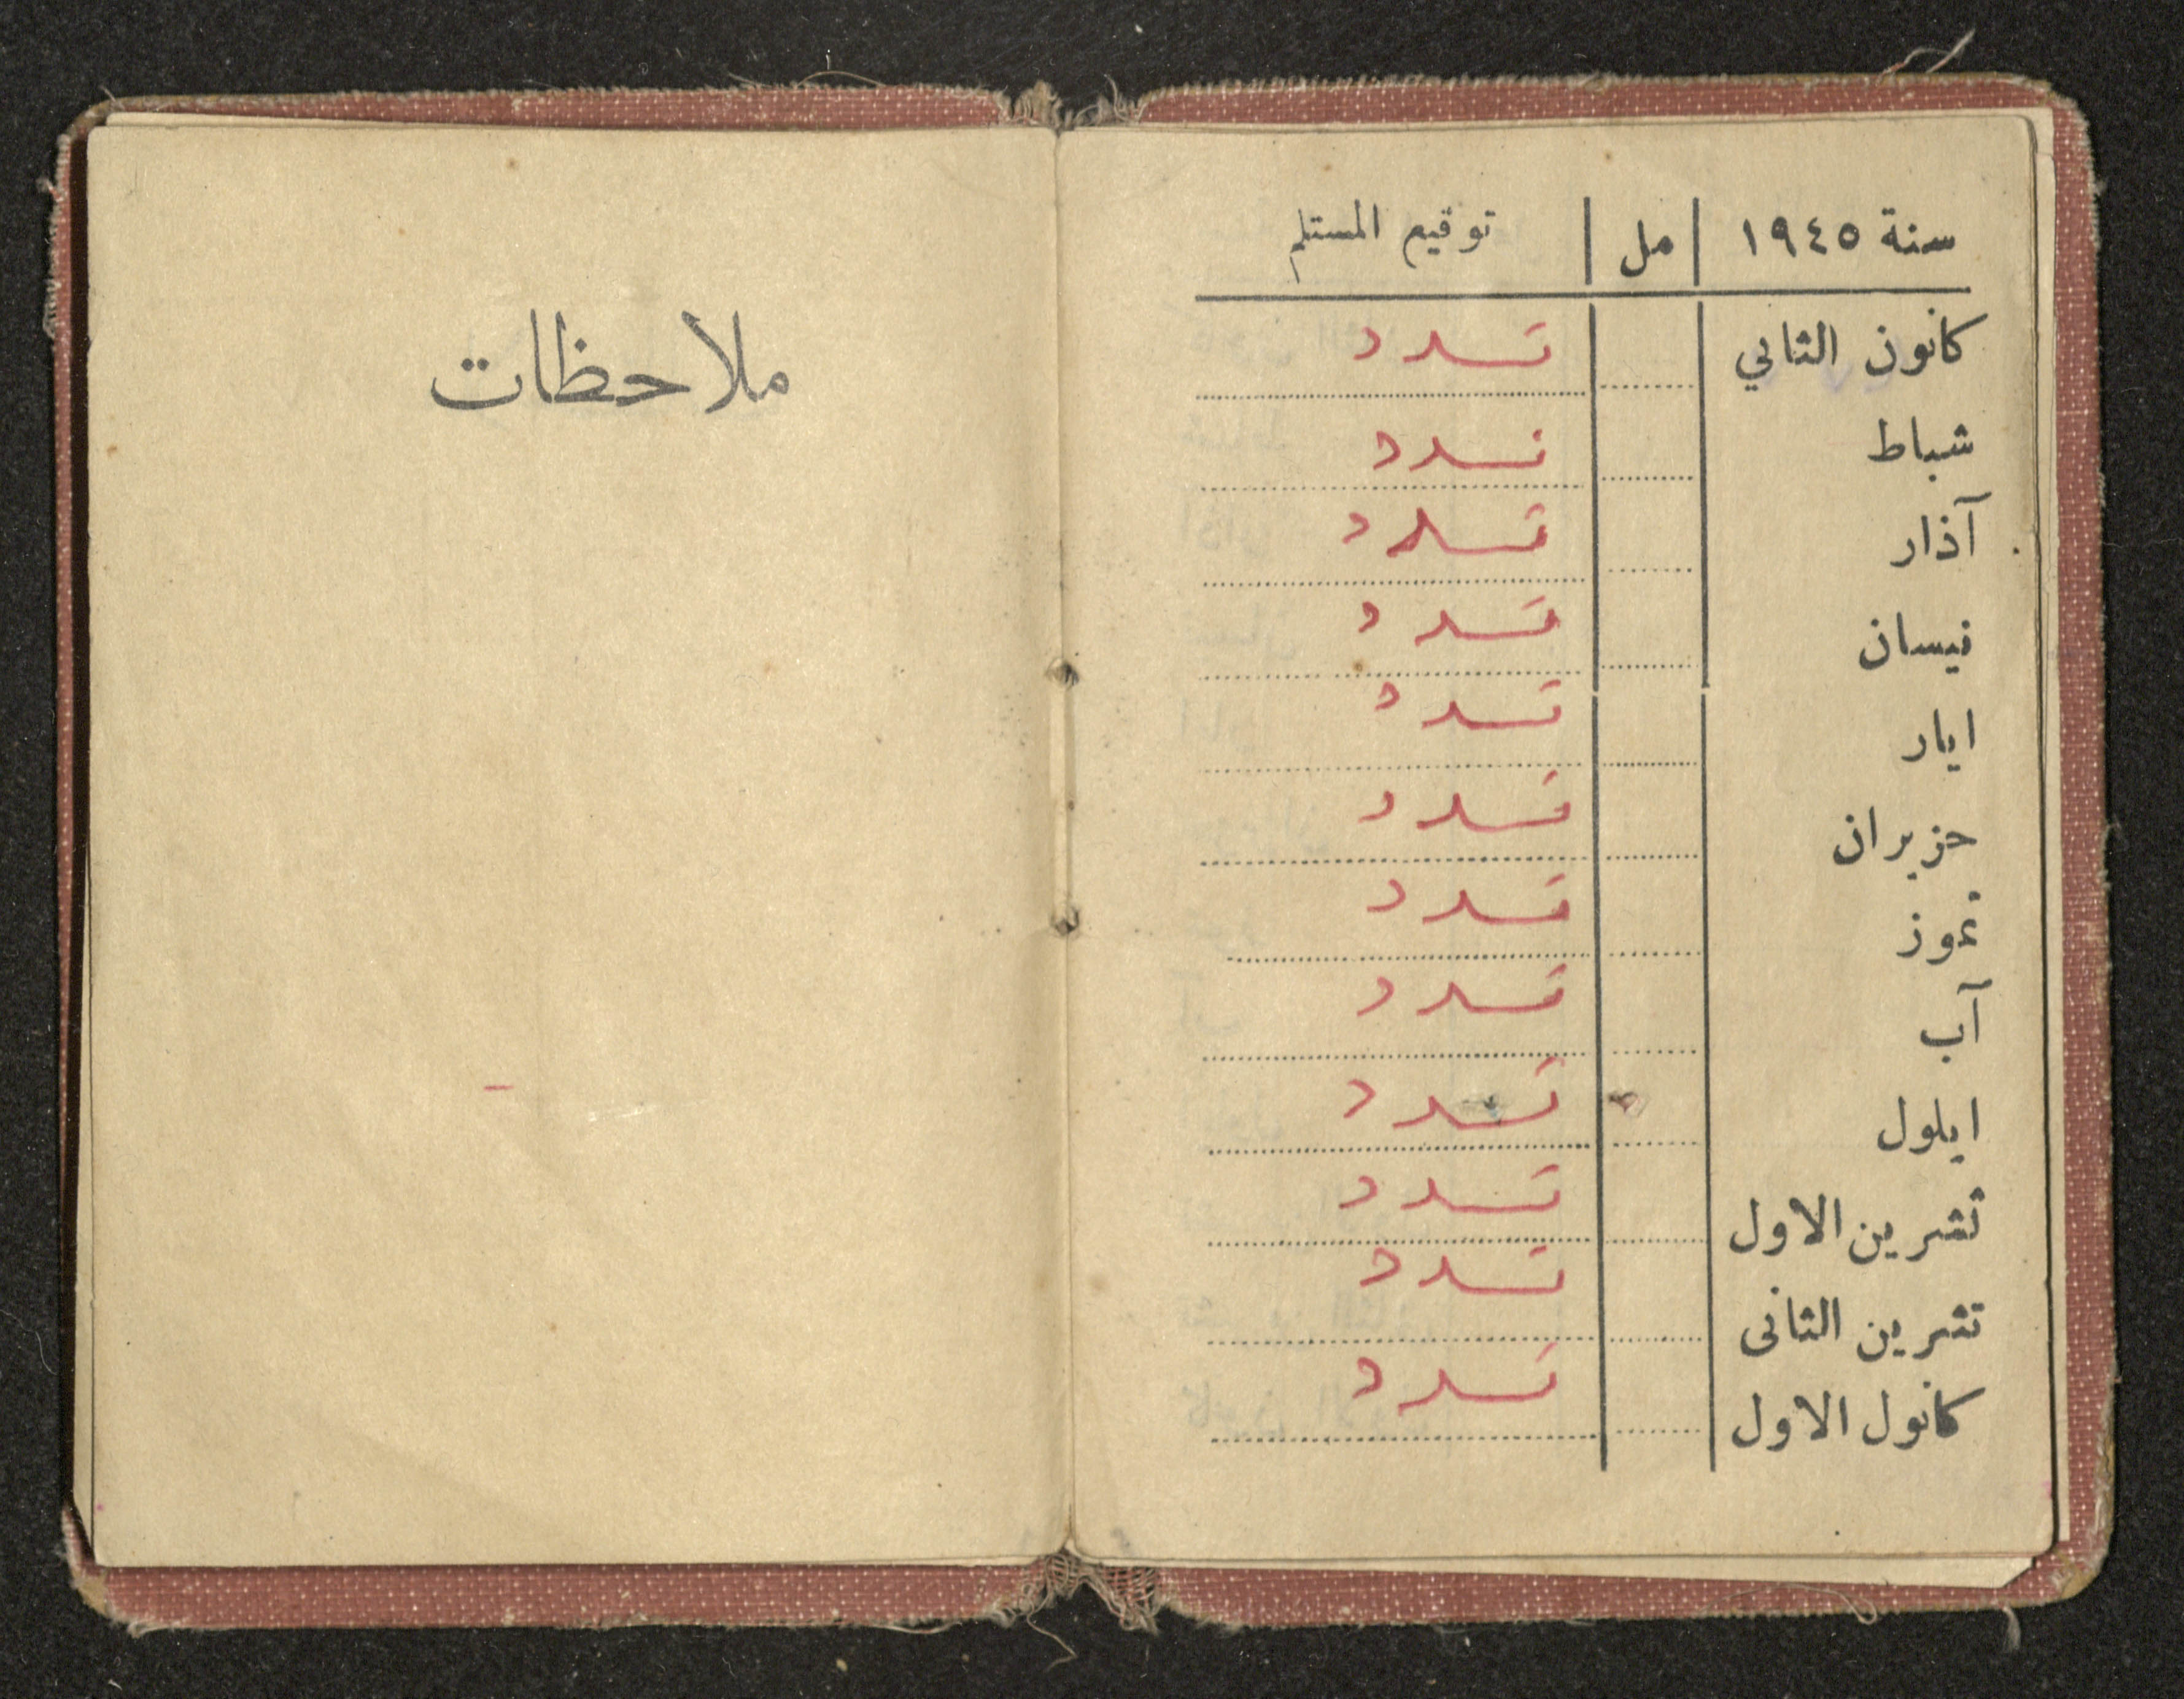 سنة ١٩٤٥ مل توقيع المستلم
كانون الثاني تسدد
شباط تسدد
آذار تسدد
نيسان تسدد
ايار تسدد
حزيران تسدد
تموز تسدد
آب تسدد
ايلول تسدد
تشرين الاول تسدد
تشرين الثانى تسدد
كانول الاول تسدد
ملاحظات